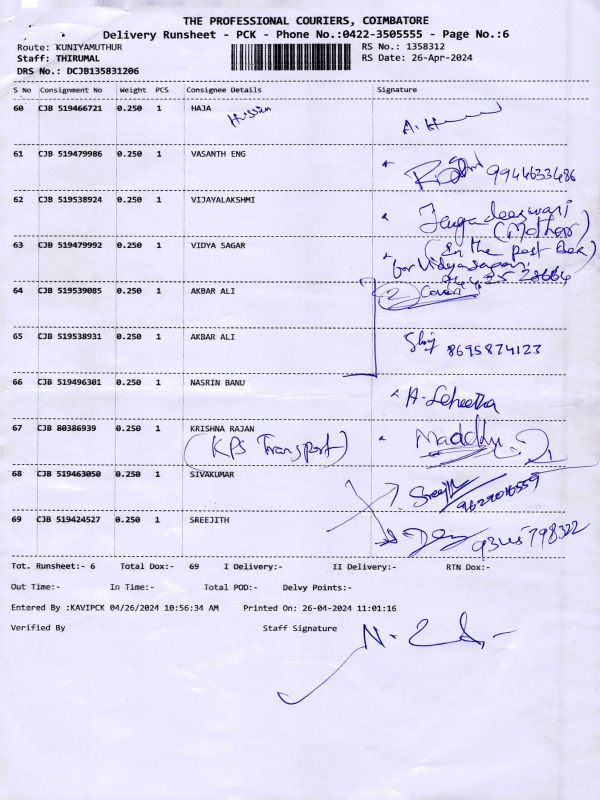 THE PROFESSIONAL COURIERS, COIMBATORE
Delivery Runsheet - PCK - Phone No.:0422-3505555 - Page No.:6
Route: KUNIYAMUTHUR RS No.: 1358312
Staff: THIRUMAL RS Date: 26-Apr-2024
DRS No.: DCJB135831206
S No Consignment No Weight PCS Consignee Details Signature
60 CJB 519466721 0.250 1 HAJA
Hussain
61 CJB 519479986 0.250 1 VASANTH ENG
9944633486
62 CJB 519538924 0.250 1 VIJAYALAKSHMI
Jagadeeswari
(Mother)
63 CJB 519479992 0.250 1 VIDYA SAGAR
(In the post Box)
for Vidyasagar
64 CJB 519539085 0.250 1 AKBAR ALI
(2) Cover
65 CJB 519538931 0.250 1 AKBAR ALI
8695874123
66 CJB 519496301 0.250 1 NASRIN BANU
67 CJB 80386939 0.250 1 KRISHNA RAJAN
(KPS Transport)
68 CJB 519463050 0.250 1 SIVAKUMAR
69 CJB 519424527 0.250 1 SREEJITH
Tot. Runsheet:- 6 Total Dox:- 69 I Delivery:- II Delivery:- RTN Dox:-
Out Time:- In Time:- Total POD:- Delvy Points:-
Entered By :KAVIPCK 04/26/2024 10:56:34 AM Printed On: 26-04-2024 11:01:16
Verified By Staff Signature